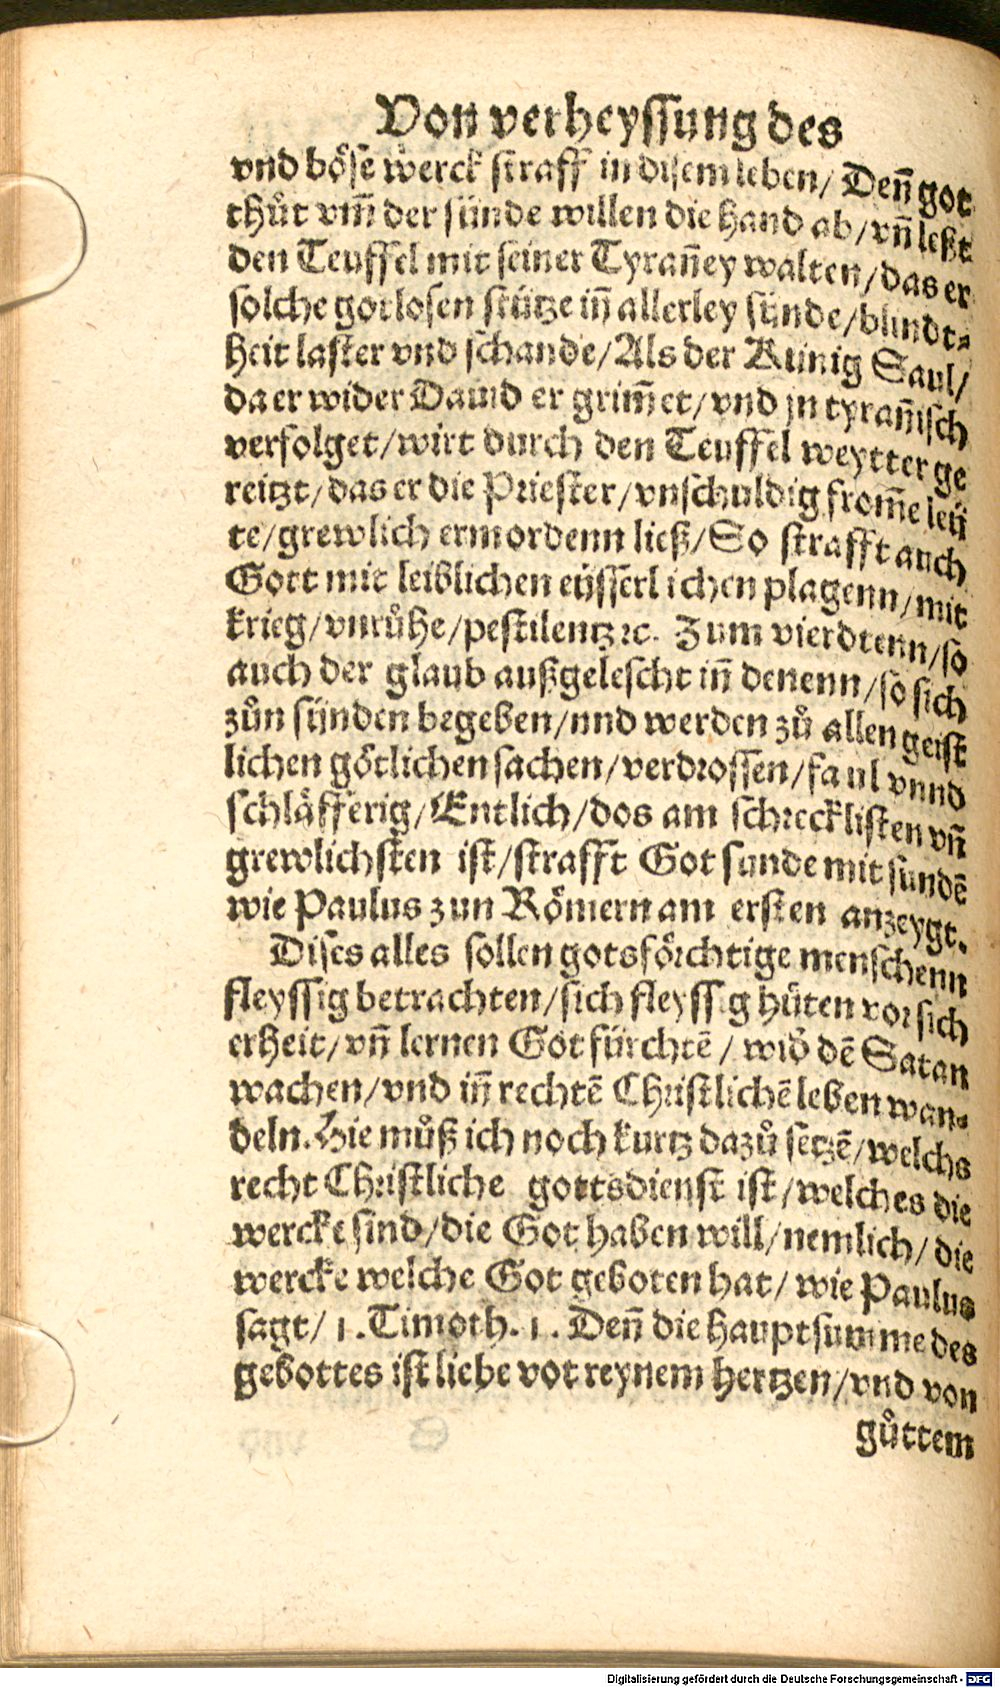 Von verheyssung des
vnd böse werck straff in disem leben/ Deñ got
thůt vm̃ der sünde willen die hand ab/ vñ leßt
den Teuffel mit seiner Tyrañey walten/ das er
solche gotlosen stütze iñ allerley sünde/ blindt⸗
heit laster vnd schande/ Als der Künig Saul/
da er wider Dauid er grim̃et/ vnd jn tyrañisch
verfolget/ wirt durch den Teuffel weytter ge
reitzt/ das er die Priester/ vnschuldig from̃e leü
te/ grewlich ermordenn ließ/ So strafft auch
Gott mit leiblichen eüsserl ichen plagenn/ mit
krieg/ vnrůhe/ pestilentz ꝛc. Zum vierdtenn/ so
auch der glaub außgelescht iñ denenn/ so sich
zůn sünden begeben/ nnd werden zů allen geist
lichen götlichen sachen/ verdrossen/ fa ul vnnd
schläfferig/ Entlich/ dos am schrecklisten vñ
grewlichsten ist/ strafft Got sunde mit sundē
wie Paulus zun Römern am ersten anzeygt.
Dises alles sollen gotsförchtige menschenn
fleyssig betrachten/ sich fleyssig hüten vor sich
erheit/ vñ lernen Got fürchtē/ wid̕ dē Satan
wachen/ vnd iñ rechtē Christlichē leben wan⸗
deln. Hie můß ich noch kurtz dazů setzē/ welchs
recht Christliche gottsdienst ist/ welches die
wercke sind/ die Got haben will/ nemlich/ die
wercke welche Got geboten hat/ wie Paulus
sagt/ 1. Timoth. 1. Deñ die hauptsumme des
gebottes ist liebe vot reynem hertzen/ vnd von
gůttem
Digitalisierung gefördert durch die Deutsche Forschungsgemeinschaft - DFG